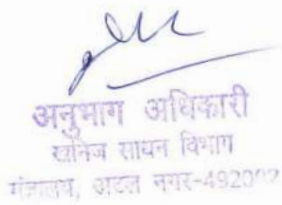 अनुभाग अधिकारी
खनिज साधन विभाग
मंत्रालय, अटल नगर-492002